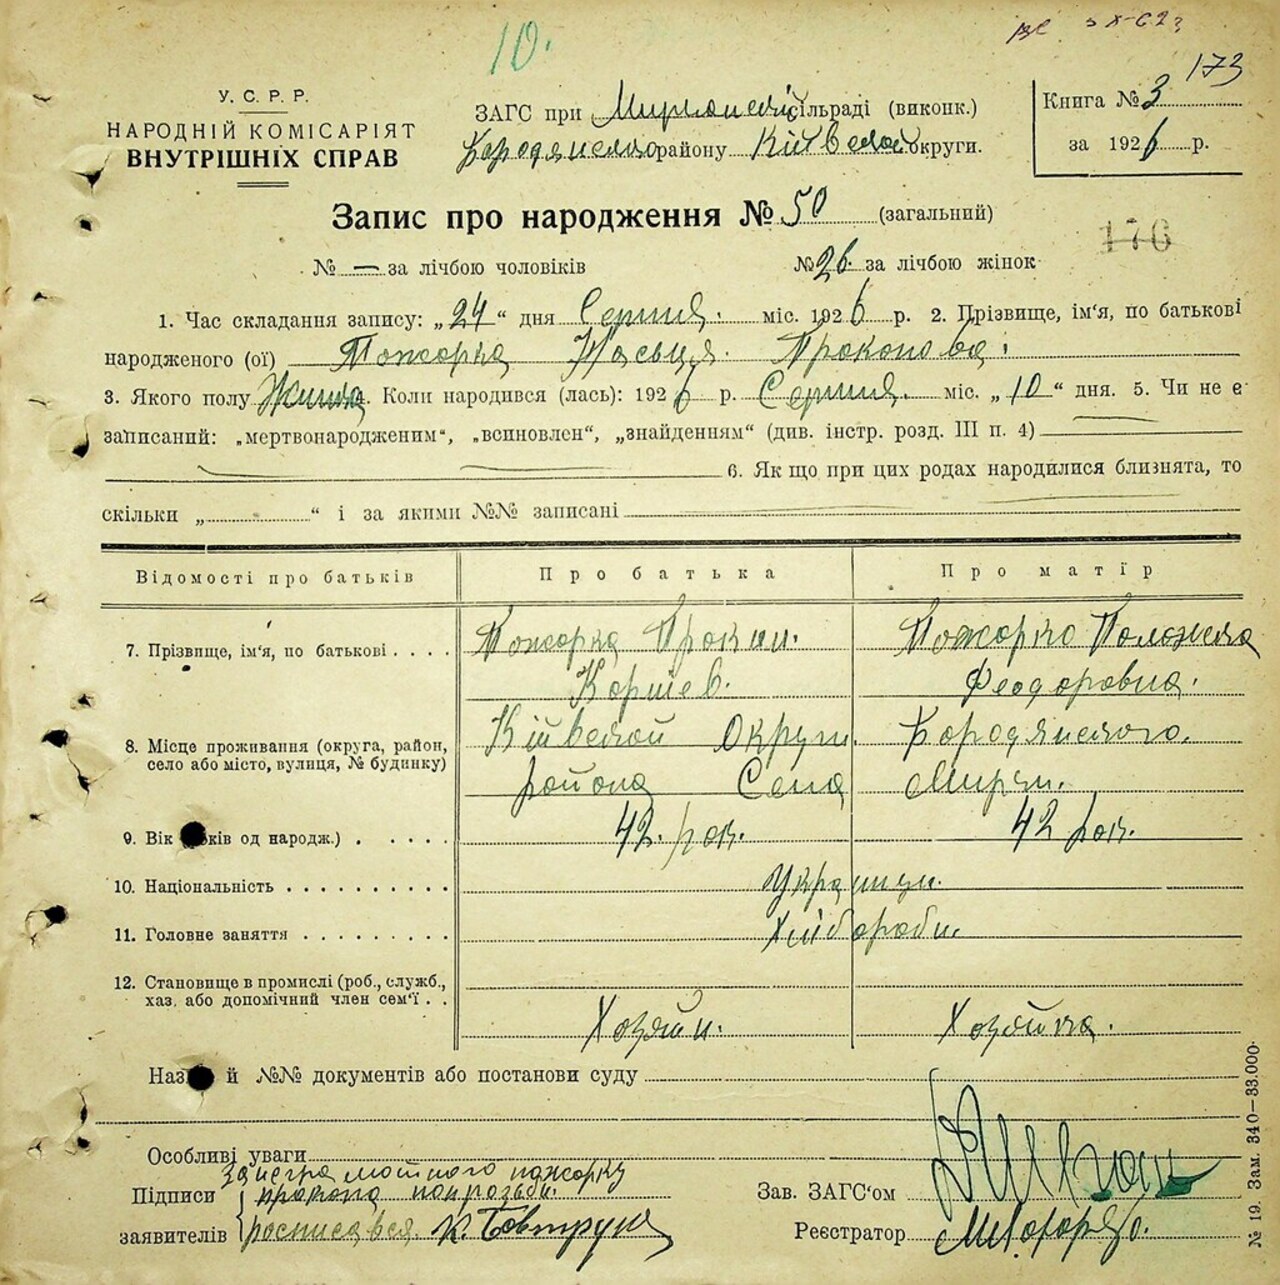 10.
173
У. С. Р. Р.
НАРОДНІЙ КОМІСАРІЯТ
ВНУТРІШНІХ СПРАВ
ЗАГС при сільраді (виконк.)
району Київської округи.
Книга № 3
за 1926 р.
Запис про народження № 50 (загальний)
176
№ — за лічбою чоловіків № 26. за лічбою жінок
1. Час складання запису: „24“ дня Серпня. міс. 1926 р. 2. Прізвище, ім‘я, по батькові
народженого (ої) Пожарка Прокопова.
3. Якого полу Жиноч. Коли народився (лась): 1926 р. Серпня. міс. „10“ дня. 5. Чи не є
записаний: „мертвонародженим“, „всиновлен“, „знайденням“ (див. інстр. розд. III п. 4)
6. Як що при цих родах народилися близнята, то
скільки „ “ і за якими №№ записані
Відомості про батьків Про батька Про матір
7. Прізвище, ім‘я, по батькові . . . . Пожарка Прокип. Пожарко
Феодоровна.
8. Місце проживання (округа, район, Київской Округи. Бородянского.
село або місто, вулиця, № будинку) района Села Мирчи.
9. Вік ків од народж.) . . . . . 42. рок. 42 рок.
10. Національність . . . . . . . . . . Украинци.
11. Головне заняття . . . . . . . . . Хлібороби.
12. Становище в промислі (роб., служб.,
хаз. або допомічний член сем‘ї . .
Хозяйн. Хозяйка.
Наз й №№ документів або постанови суду
Особливі уваги
За неграмотного пожарку
Підписи прокопа попрозьби.
Зав. ЗАГС‘ом
заявителів росписався. К.
Реєстратор
№ 19. Зам. 340—33.000.